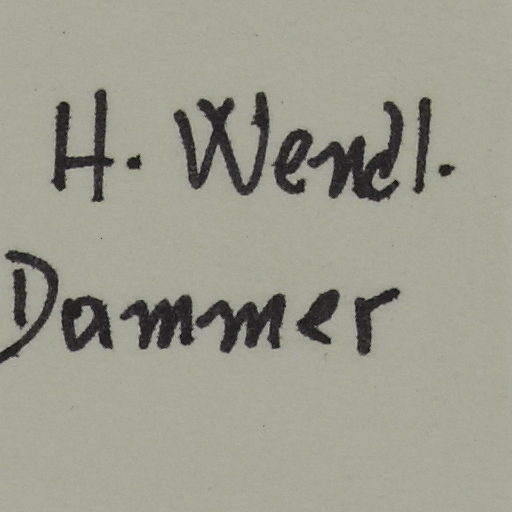 H. Wendl.
Dammer